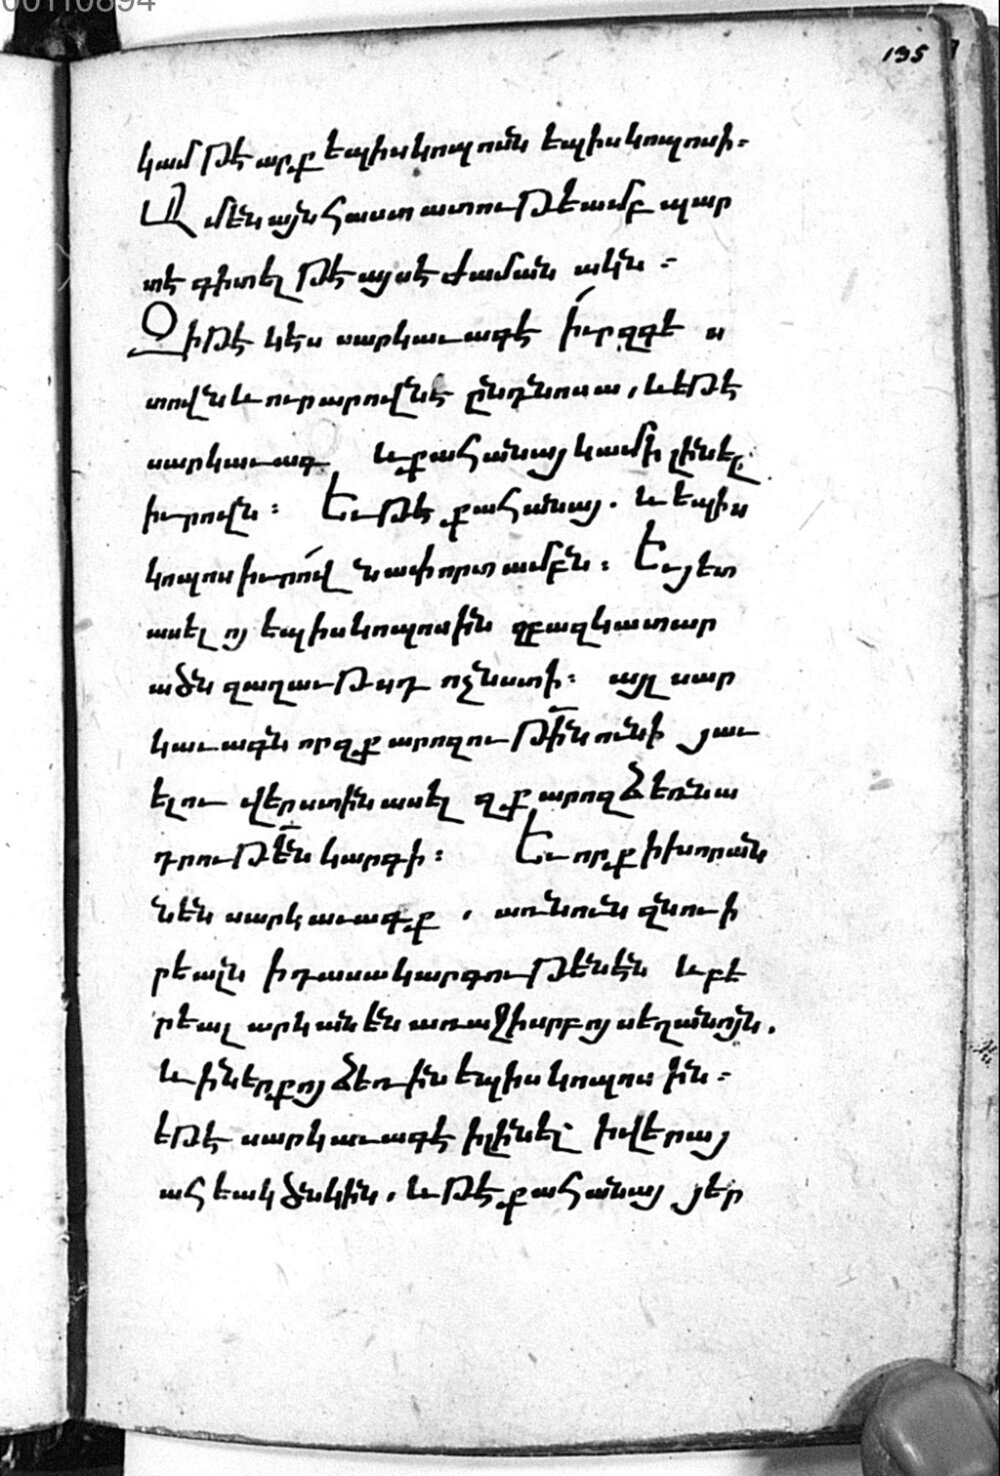 00110894
135
կամ թէ արք եպիսկոպոսն եպիսկոպոսի։
Ամենայն հաստատութեամբ պար
տէ գիտել թէ այսէ ժաման ակն ։
Զի թէ կէս սարկաւագէ իւր զգէ ս
տովն և ուրարովնէ ընդնոսա, և եթէ
սարկաւագ և քահանայ կամի լինել
իւրովն ։ Եւ թէ քահանայ. և եպիս
կոպոս իւրով նափորտամբն ։ Եւ յետ
ասել ոյ եպիսկոպոսին զբազկատար
ածն զաղաւթսդ ոչնստի։ այլ սար
կաւագն որ զքարոզութինունի յաւ
ելու վերստին ասել զքարոզ ձեռնա
դրութէն կարգի ։ Եւ որք խիսորան
նեն սարկաւագք , առնուն զնուի
րեալն ի դասակարգութենէն և բե
րեալ արկանեն առաջի սրբոյ սեղանոյն.
և ի ներքոյ ձեռին եպիսկոպոսին ։
եթէ սարկաւագէ ի լինել ի վերայ
ահեակ ծնկին, և թէ քահանայ յեր